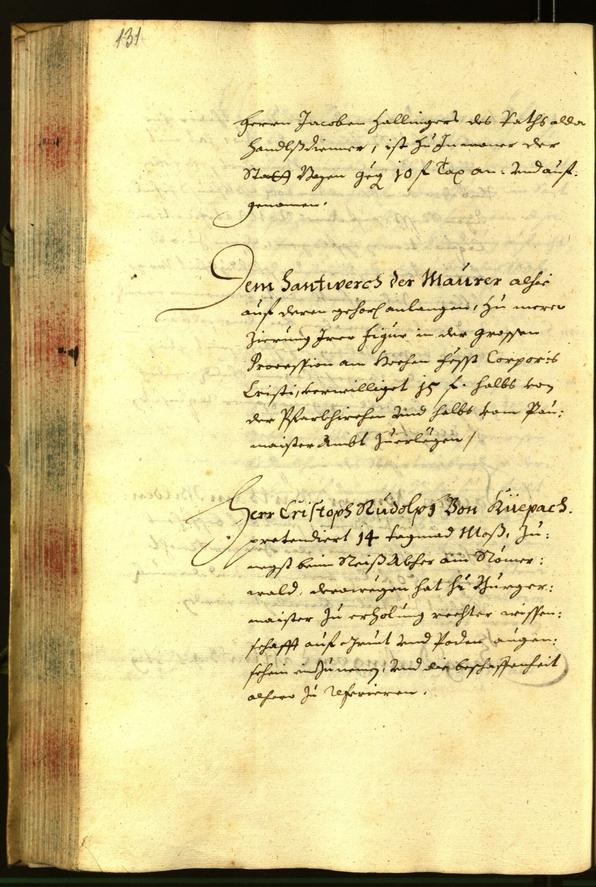 131
Herrn Jacoben Hallingers des Raths alda
Handlßdienner, ist zu Innwoner der
Statt Bozen geg 10 f Tax an: und auf:
genomen.
Dem Hantwerch der Maurer alhie
auf deren gehors: anlangen, zu merer
Zierung Irer Figur in der grossen
Procession am Hochen Fesst Corporis
Cristi, verwilliget 15 f. halbs von
der Pfarrkhirchen und halbs vom Pau:
maisterambt zuerlegen /
Herr Cristoph Rudolph Von Küepach.
pretendiert 14 tagmad Moß, zu:
negst beim am
wald, derowegen hat Hr Burger:
maister zu erholung rechter wissen:
schafft auf Grunt und Poden augen:
schein einzunemen, und die beschaffenheit
alhero zu referieren.